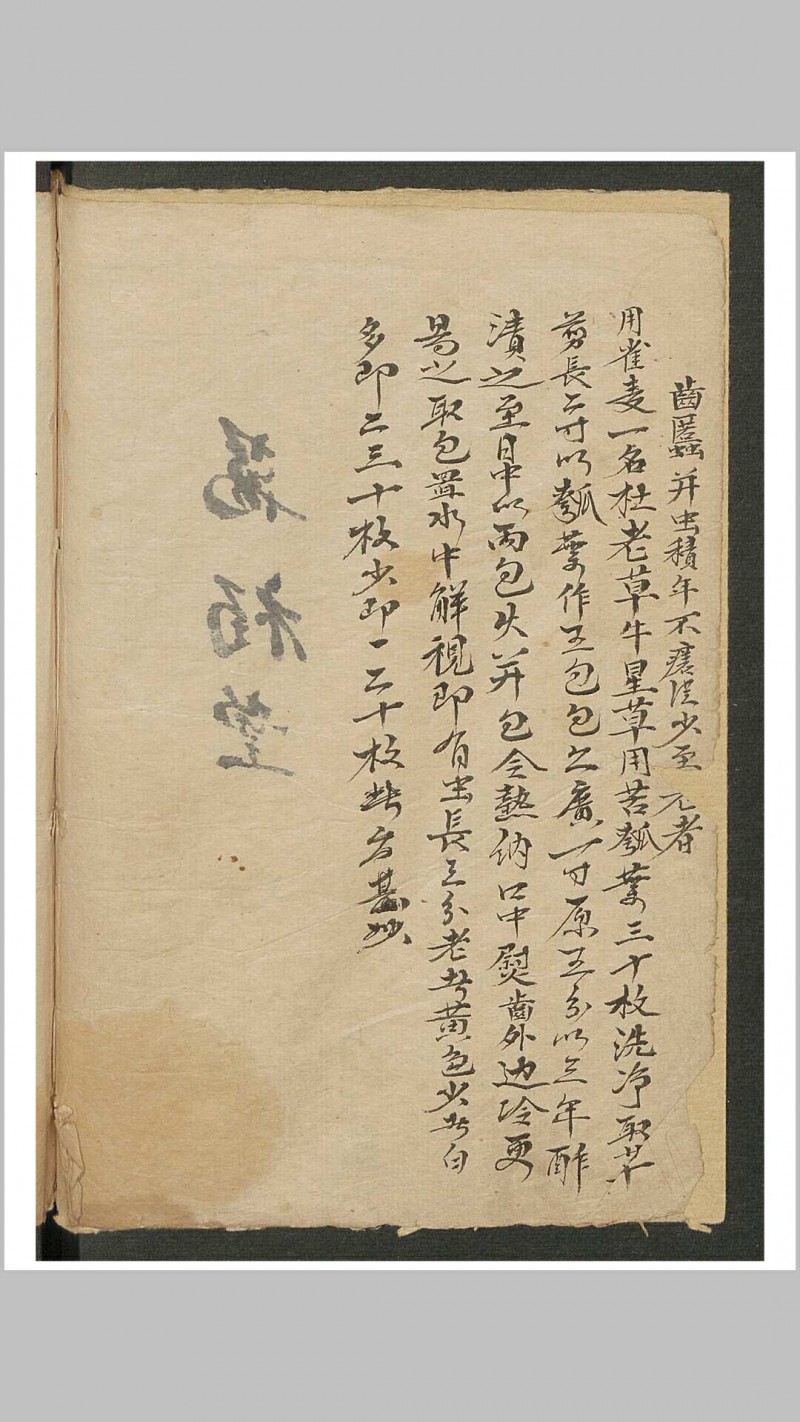 齒䘌并虫積年不瘥從少至者
用雀麦一名杜老草牛星草用苦瓠葉三十枚洗净取草
剪長二寸以瓠葉作五包包之廣一寸原五分以三年酢
漬之至日中以两包火并包令熱納口中熨齒外边冷更
易之取包置水中解視即有虫長三分老者黄色少者白
多即二三十枚少即一二十枚此方甚妙